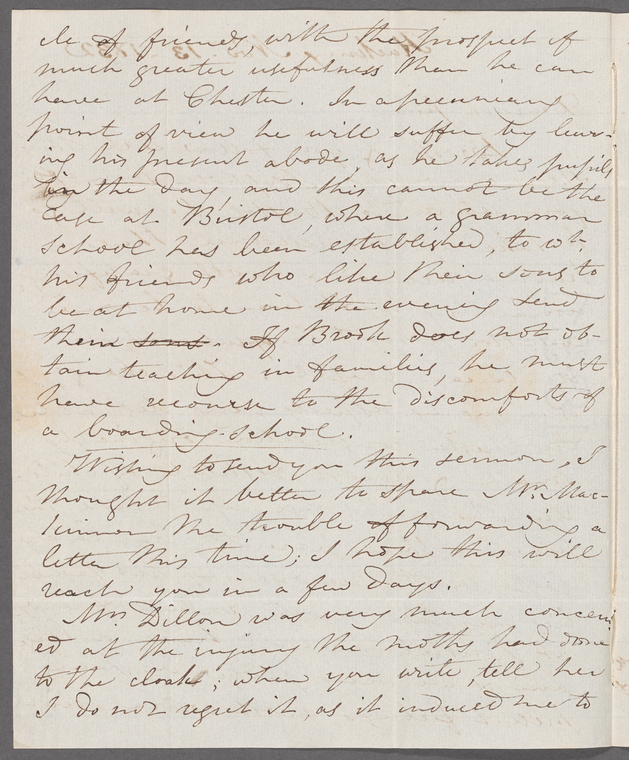 cle of friends, with the prospect of
much greater usefulness than he can
have at Chester. In a pecuniary
point of view he will suffer by leav-
ing his present abode, as he takes pupils
in the day, and this cannot be the
case at Bristol, where a grammar
school has been established, to wh.
his friends who like their sons to
be at home in the evening send
their sons. If Brook does not ob-
tain teaching in families, he must
have recourse to the discomforts of
a boarding-school.
Wishing to send you this sermon, I
thought it better to spare Mr. Mac-
kinnon the trouble of forwarding a
letter this time; I hope this will
reach you in a few days.
Mrs. Dillon was very much concern
ed at the injury the moths had done
to the cloak; when you write, tell her
I do not regret it, as it induced me to